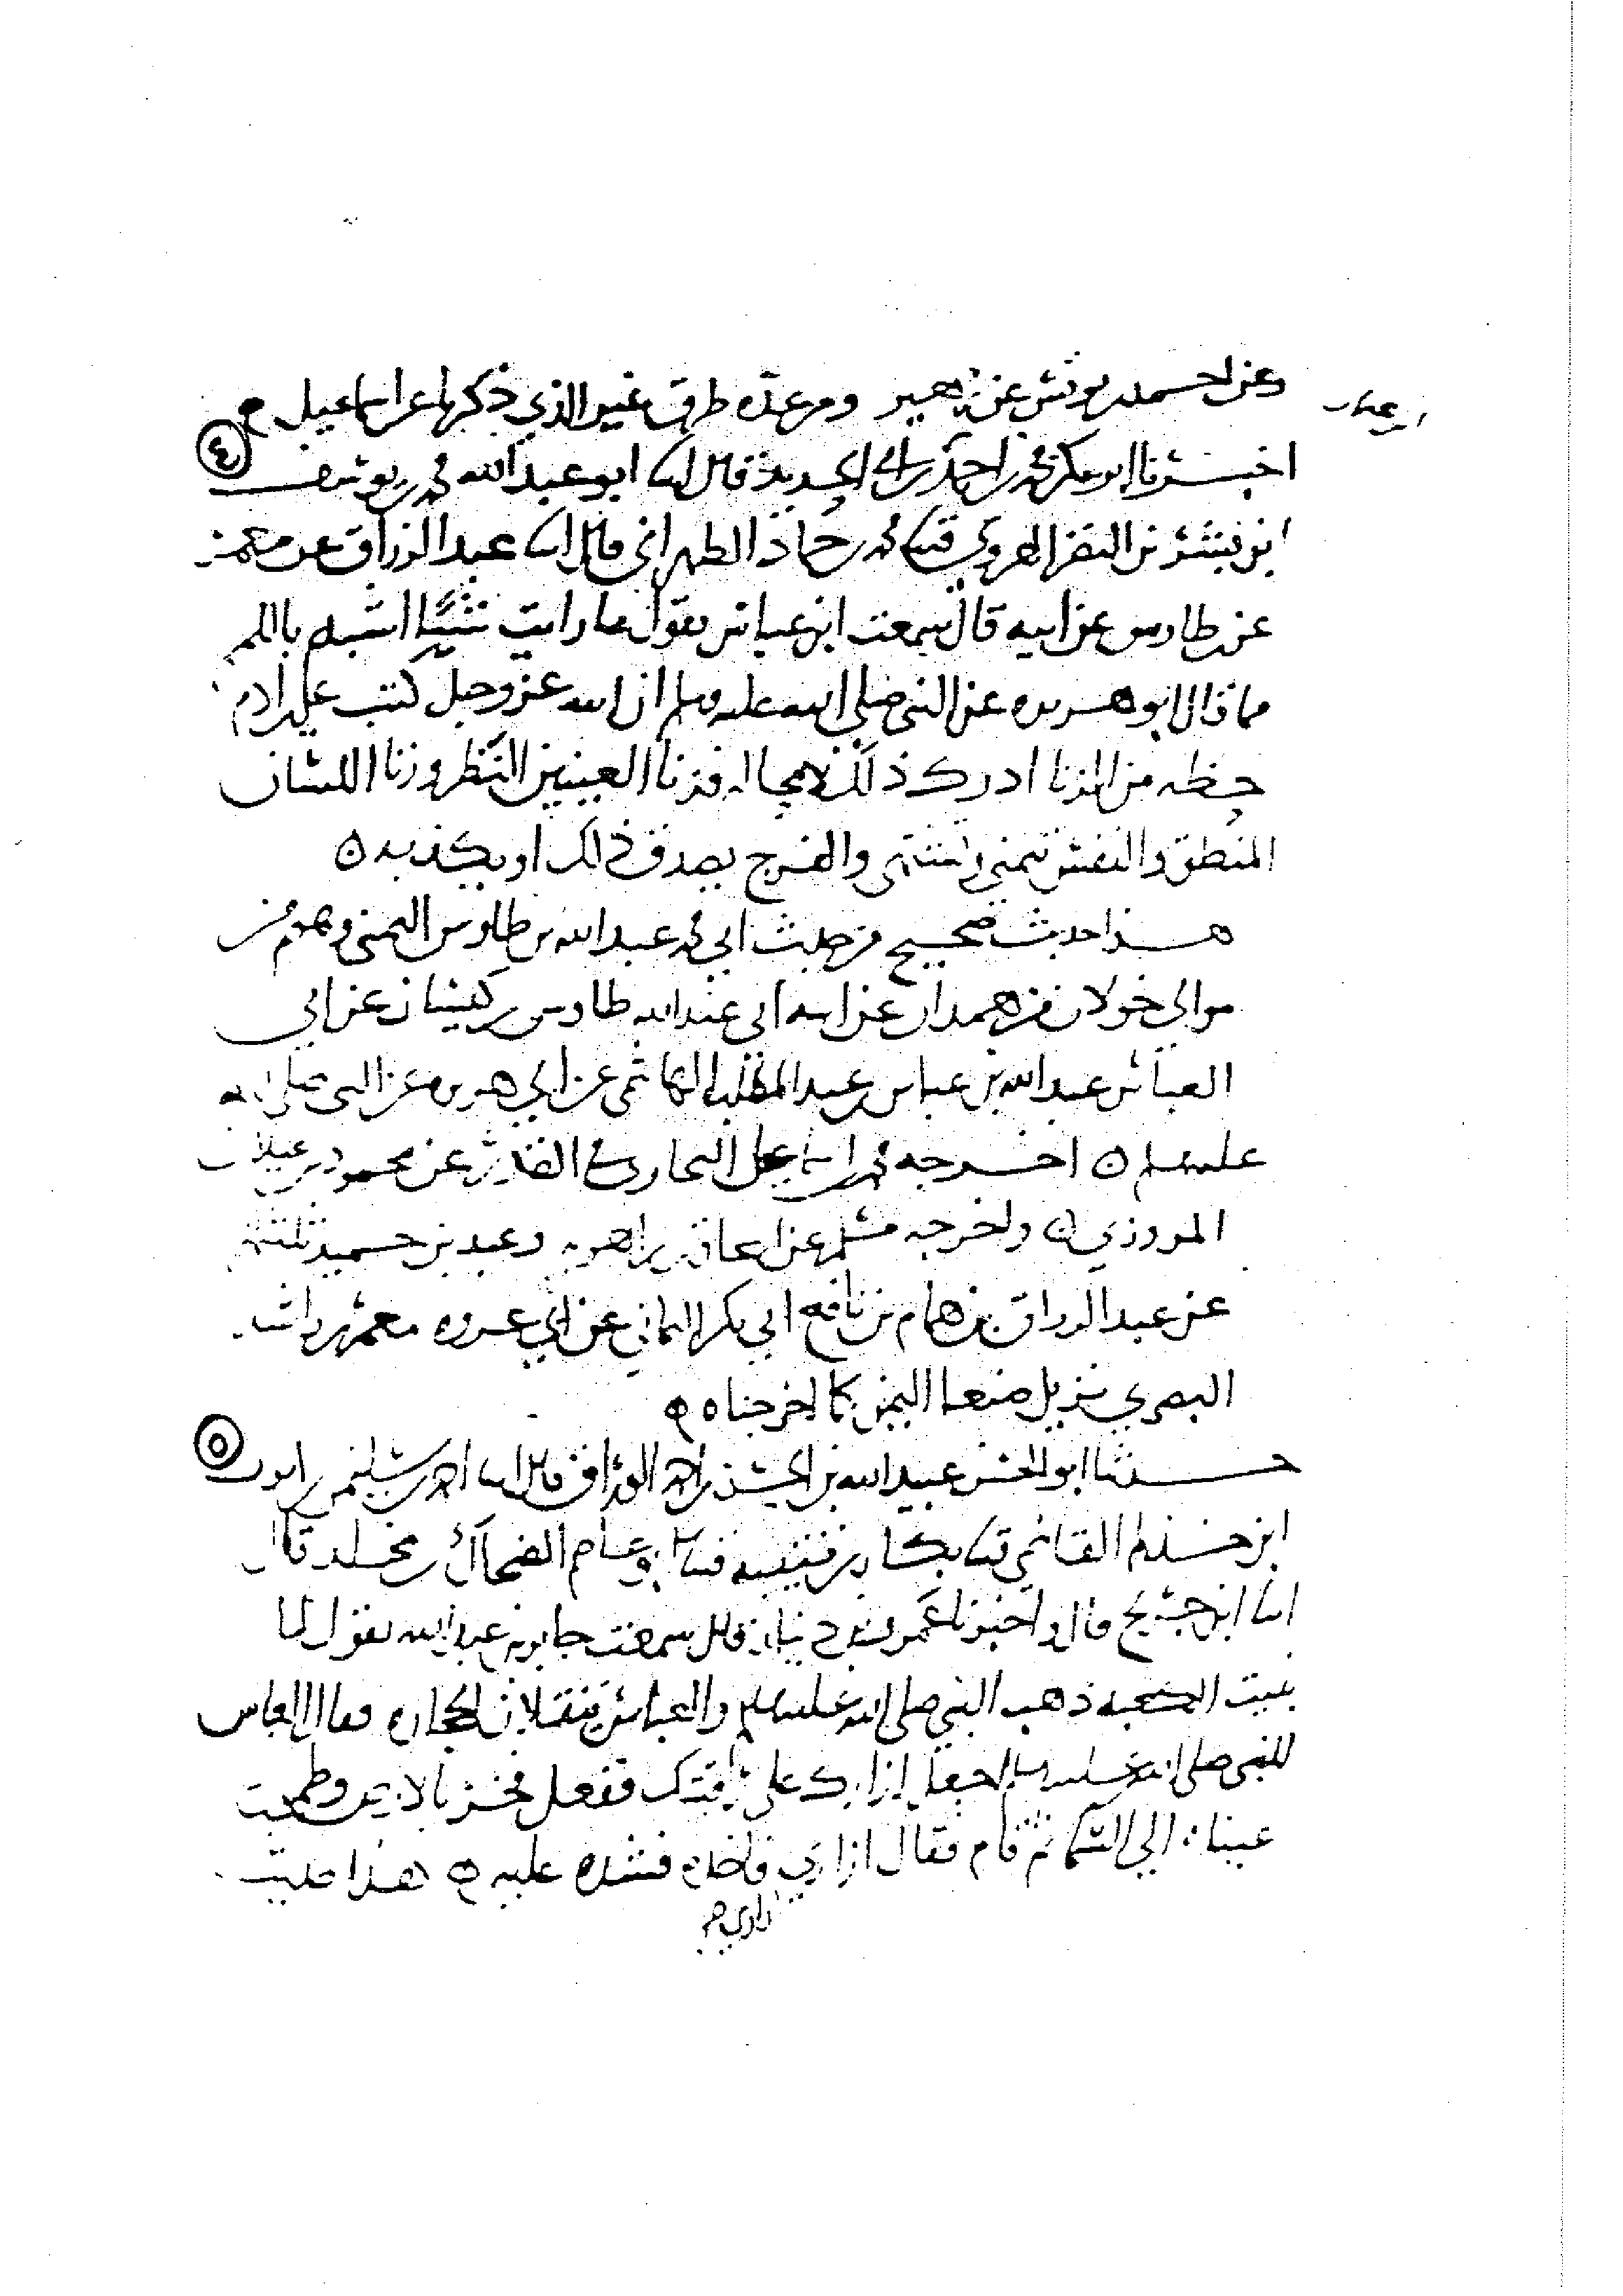 وعن احمد بن يونس عن زهير ومن عدة طرق غير الذي ذكرها عن اسماعيل
اخبرنا ابو بكر محمد بن احمد بن ابي الحديد قال انبا ابو عبد الله محمد بن يوسف
٤
ابن بشر بن النضر الهروي قثنا محمد بن حماد الطهراني قال انبا عبد الرزاق عن معمر
عن بن طاوس عن ابيه قال سمعت ابن عباس يقول ما رايت شيئا اشبه باللمم
مما قال ابو هريرة عن النبي صلى الله عليه وسلم ان الله عز وجل كتب على ابن ادم
حظه من الزنا ادرك ذلك لا محالة فزنا العينين النظر وزنا اللسان
المنطق والنفس تمنى وتشتهي والفرج يصدق ذلك او يكذبه ٥
هذا حديث صحيح من حديث ابي محمد عبد الله بن طاوس اليمني وهو من
موالي خولان من همدان عن ابيه ابي عبد الله طاوس بن كيسان عن ابي
العباس عبد الله بن عباس بن عبد المطلب الهاشمي عن ابي هريرة عن النبي صلى الله
عليه وسلم ٥ اخرجه محمد بن اسماعيل البخاري في القدر عن محمود بن غيلان
المروزي ٥ واخرجه مسلم عن اسحاق بن راهويه وعبد بن حميد
عن عبد الرزاق بن همام بن نافع ابي بكر اليماني عن ابي عروة معمر بن راشد
البصري نزيل صنعا اليمن كما اخرجناه ٥
حدثنا ابو الحسن عبيد الله بن الحسن بن احمد الوراق قال انبا احمد بن سليمن بن ايوب
٥
ابن حذلم القاضي قثنا بكار بن قتيبة قثنا ابو عاصم الضحاك بن مخلد قال
انبا ابن جريج قال واخبرنا عمرو بن دينار قال سمعت جابر بن عبد الله يقول لما
بنيت الكعبة ذهب النبي صلى الله عليه وسلم والعباس ينقلان الحجارة فقال العباس
للنبي صلى الله عليه وسلم اجعل ازارك على عاتقك ففعل فخر بالارض وطمحت
عيناه الى السما ثم قام فقال ازاري فاخذه فشده عليه ٥ هذا حديث
ازاري